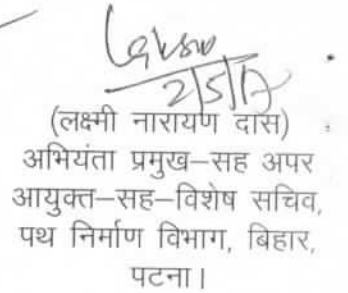 2/5/17
(लक्ष्मी नारायण दास)
अभियंता प्रमुख–सह अपर
आयुक्त–सह–विशेष सचिव,
पथ निर्माण विभाग, बिहार,
पटना।